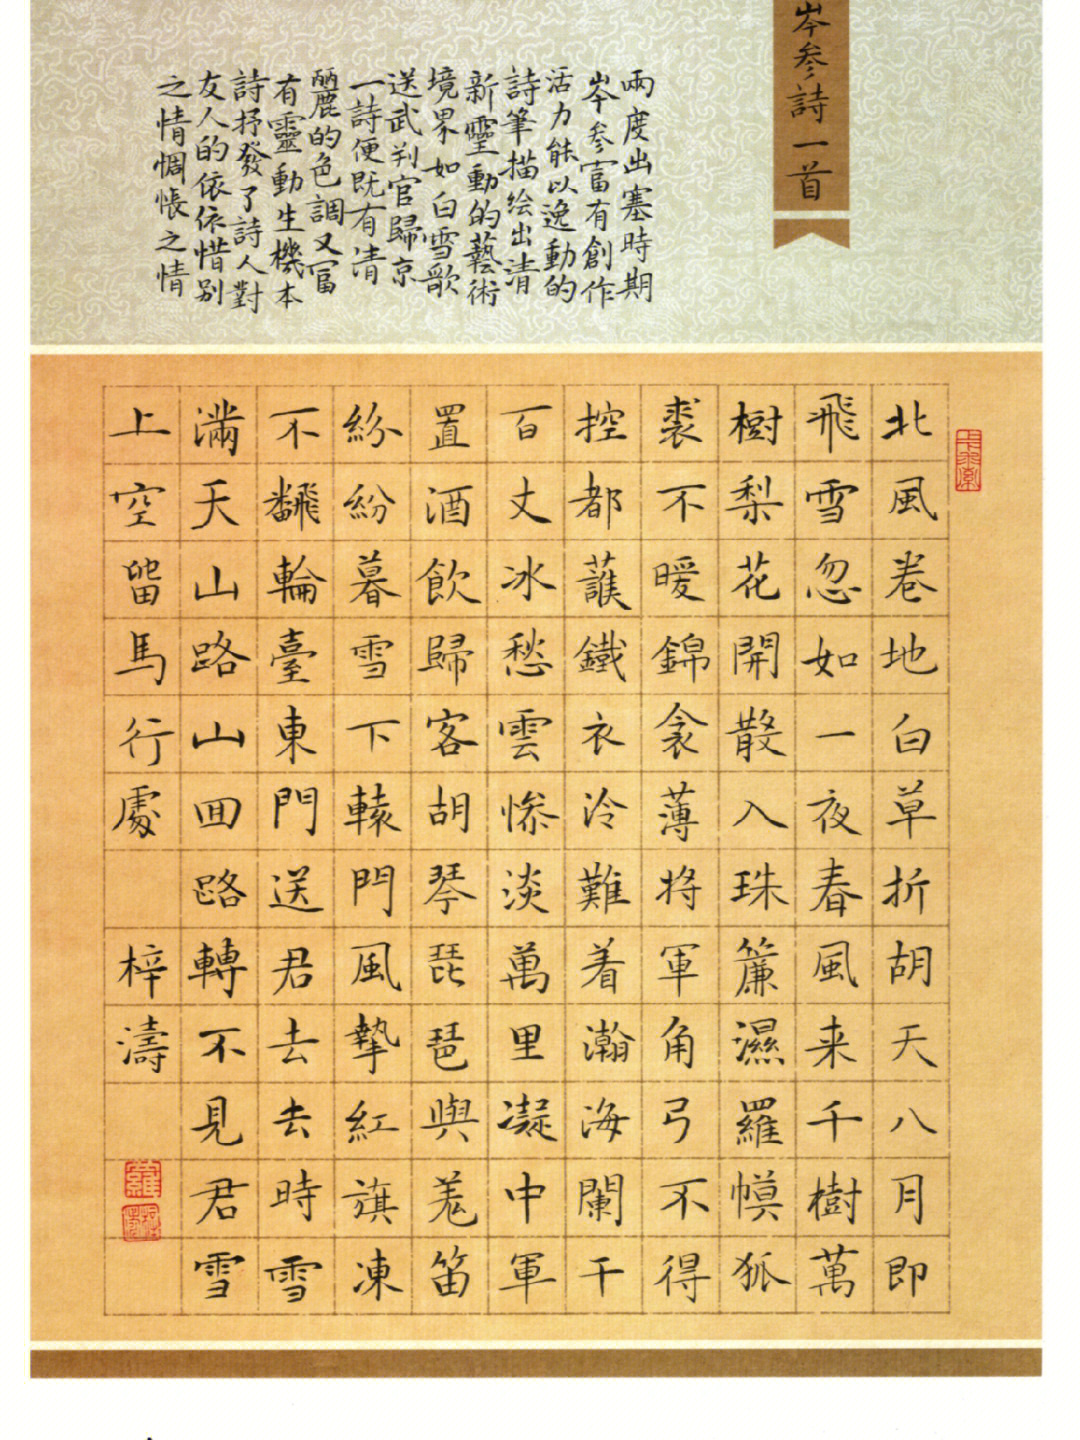 岑参詩一首
兩度出塞時期
岑参富有創作
活力能以逸動的
詩筆描绘出清
新靈動的藝術
境界如白雪歌
送武判官歸京
一詩便既有清
麗的色調又富
有靈動生機本
詩抒發了詩人對
友人的依依惜别
之情惆悵之情
北風卷地白草折胡天八月即
飛雪忽如一夜春風来千樹萬
樹梨花開散入珠簾濕羅幙狐
裘不暖錦衾薄将軍角弓不得
控都護鐵衣冷難着瀚海闌干
百丈冰愁雲惨淡萬里凝中軍
置酒飲歸客胡琴琵琶與羌笛
紛紛暮雪下轅門風摯紅旗凍
不飜輪臺東門送君去去時雪
滿天山路山囬路轉不見君雪
上空留馬行處 梓濤